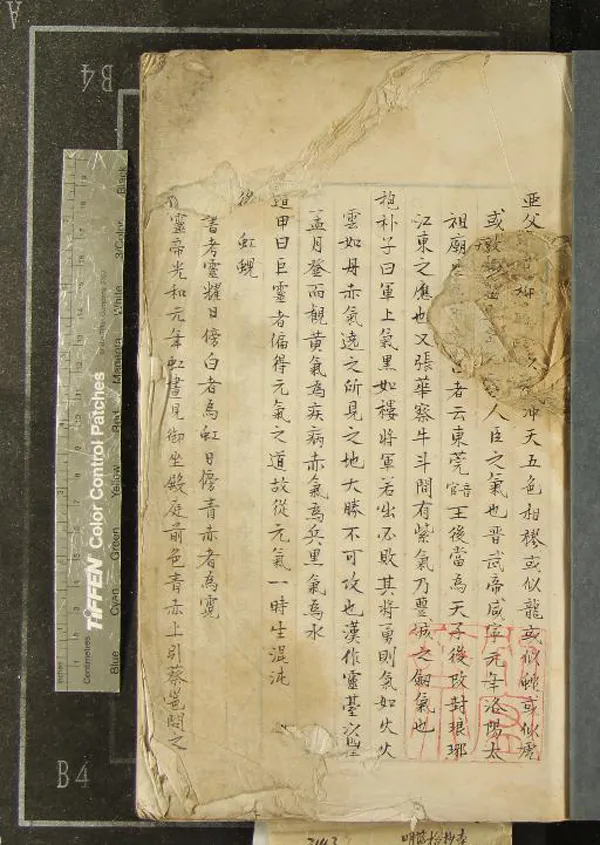 亞父 冲天五色相樛或似龍或似蛇或似虎
或 人臣之氣也晉武帝咸寧元年洛陽太
祖廟 者云東莞王後當為天子後改封琅琊
江東之應也又張華察牛斗間有紫氣乃豐城之劍氣也
抱朴子曰軍上氣黑如樓將軍若出必敗其將勇則氣如火火
雲如丹赤氣遶之所見之地大勝不可攻也漢作靈臺
孟月登而觀黃氣為疾病赤氣為兵黑氣為水
遁甲曰巨靈者偏得元氣之道故從元氣一時生混沌
虹蜺
考靈耀日傍白者為虹日傍青赤者為霓
靈帝光和元年虹晝見御坐殿庭前色青赤上引蔡邕問之
B4
B4
A
TIFFEN Color Control Patches
Blue
Cyan
Green
Yellow
Red
Magenta
White
3/Color
Black
Inches
Centimetres